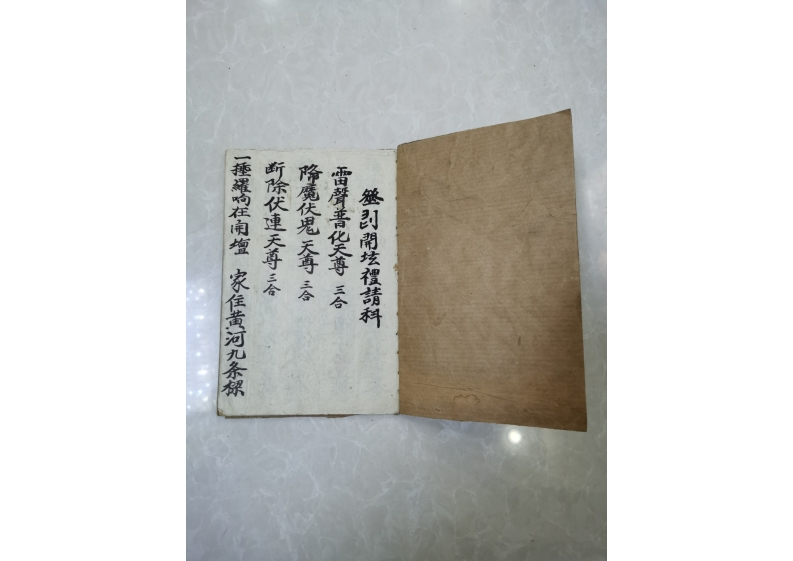 開坛禮請科
雷聲普化天尊 三合
降魔伏鬼天尊 三合
断除伏連天尊 三合
一捶羅响在開壇 家住黄河九条樑